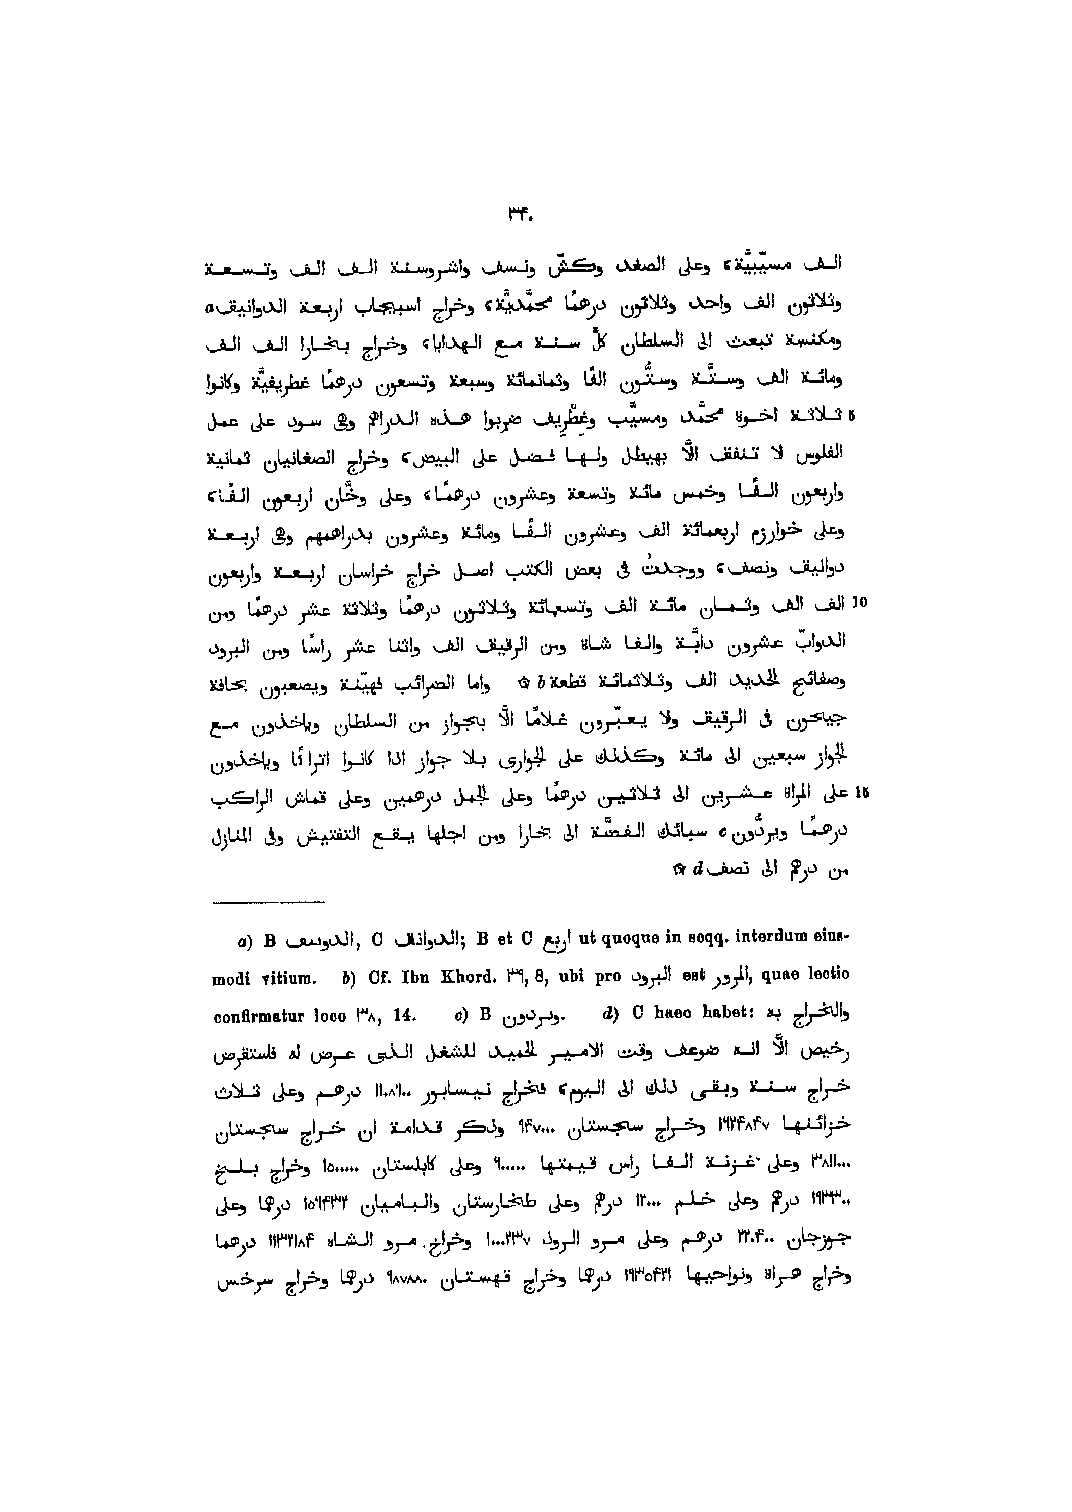 ٣٤٠
الف مسيّبيّة، وعلى الصغد وكشّ ونسف واشروسنة الف الف وتسعة
وثلاثون الف واحد وثلاثون درهمًا محمّديّة، وخراج اسبيجاب اربعة الدوانيق a
ومكنسة تبعث الى السلطان كلّ سنة مع الهدايا، وخراج بخارا الف الف
ومائة الف وستّة وستّون الفًا وثمانمائة وسبعة وتسعون درهمًا غطريفيّة وكانوا
5 ثلاثة اخوة محمّد ومسيّب وغطّريف ضربوا هذه الدراهم وهى سود على عمل
الفلوس لا تنفق الّا بهيطل ولها فضل على البيض، وخراج الصغانيان ثمانية
واربعون الفًا وخمس مائة وتسعة وعشرون درهمًا، وعلى وخّان اربعون الفًا،
وعلى خوارزم اربعمائة الف وعشرون الفًا ومائة وعشرون بدراهمهم وهى اربعة
دوانيق ونصف، ووجدتُ فى بعض الكتب اصل خراج خراسان اربعة واربعون
10 الف الف وثمان مائة الف وتسعمائة وثلاثون درهمًا وثلاثة عشر درهمًا ومن
الدوابّ عشرون دابّة والفا شاة ومن الرقيق الف واثنا عشر راسًا ومن البرود
وصفائح الحديد الف وثلاثمائة قطعة b ☆ واما الضرائب فهيّنة ويصعبون بحافة
جيحون فى الرقيق ولا يعبّرون غلامًا الّا بجواز من السلطان وياخذون مع
الجواز سبعين الى مائة وكذلك على الجوارى بلا جواز اذا كانوا اتراكًا وياخذون
15 على المراة عشرين الى ثلاثين درهمًا وعلى الجمل درهمين وعلى قماش الراكب
درهمًا ويردّون c سبائك الفضّة الى بخارا ومن اجلها يقع التفتيش وفى المنازل
من درهم الى نصف d ☆
a) B الدوسف, C الدوانف; B et C اربع ut quoque in seqq. interdum eius-
modi vitium. b) Cf. Ibn Khord. ٣٩, 8, ubi pro البرود est المرور, quae lectio
confirmatur loco ٣٨, 14. c) B ويردون. d) C haec habet: والخراج به
رخيص الّا انه ضوعف وقت الامير الحميد للشغل الذى عرض له فاستقرض
خراج سنة وبقى ذلك الى اليوم، فخراج نيسابور ١١٠٨٦٠٠ درهم وعلى ثلاث
خزائنها ١٩٢٤٨٤٧ وخراج سجستان ٩٤٧٠٠٠ وذكر قدامة ان خراج سجستان
٣٨١١٠٠٠ وعلى غزنة الفا راس قيمتها ٦٠٠٠٠٠ وعلى كابلستان ١٥٠٠٠٠٠ وخراج بلخ
١٩٣٣٠٠ درهم وعلى خلم ١٢٠٠٠ درهم وعلى طخارستان والباميان ١٥٦٤٣٢ درهما وعلى
جوزجان ٢٢٠٤٠٠ درهم وعلى مرو الرود ١٠٠٠٢٣٧ وخراج مرو الشاه ١١٣٢١٨٤ درهما
وخراج هراة ونواحيها ١٩٣٥٤٢١ درهما وخراج قهستان ٩٨٧٨٨٠ درهما وخراج سرخس